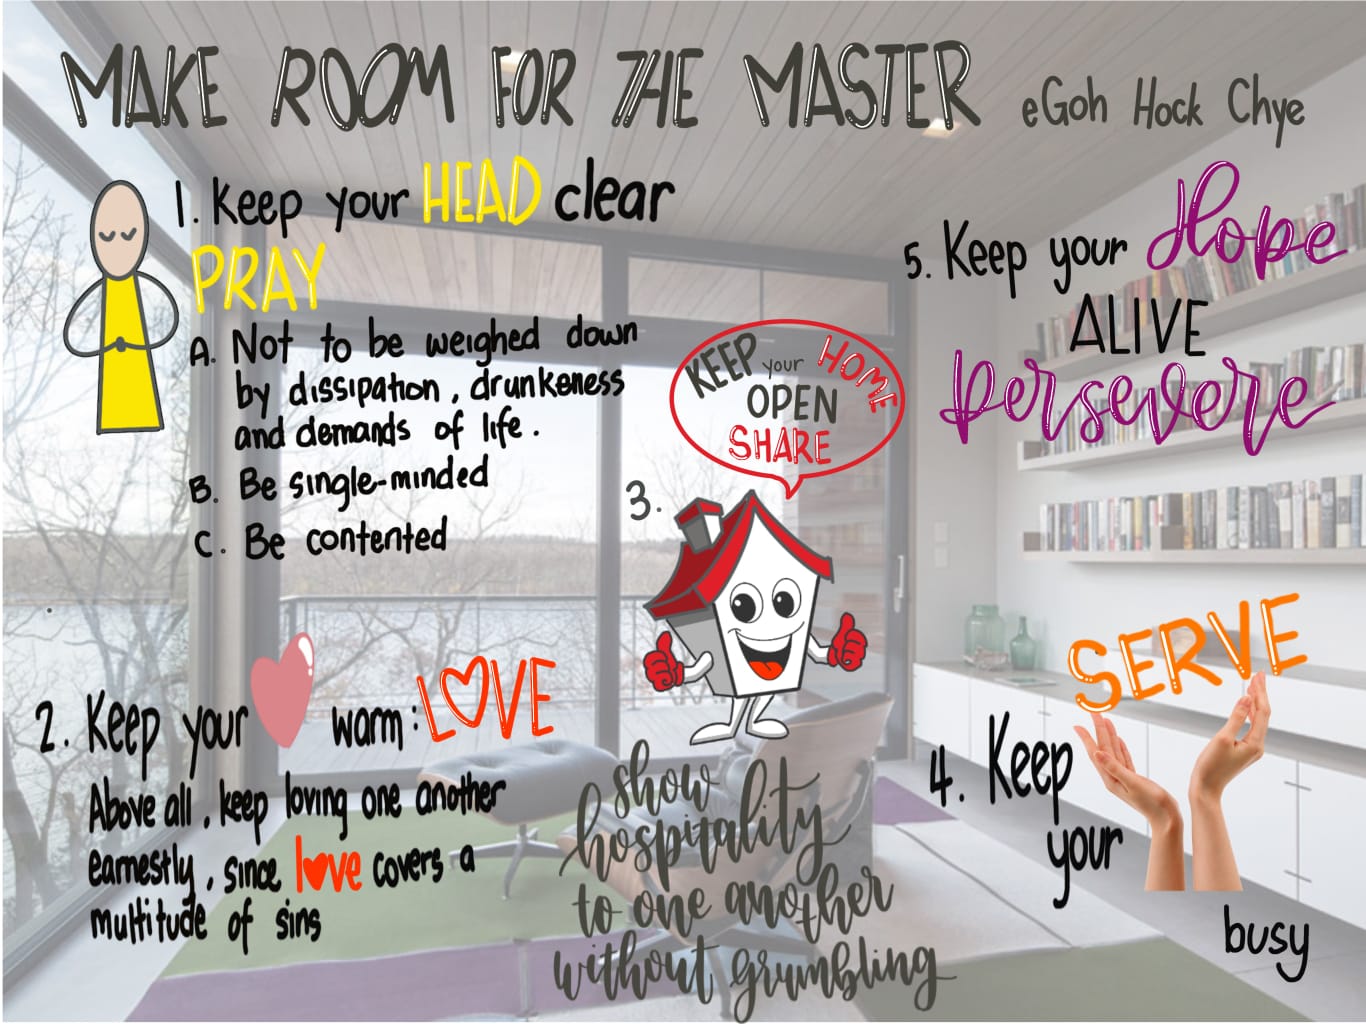 MAKE ROOM FOR THE MASTER eGoh Hock Chye
1. Keep your HEAD clear
PRAY
A. Not to be weighed down
by dissipation, drunkeness
and demands of life.
B. Be single-minded
C. Be contented
2. Keep your warm: LOVE
Above all, keep loving one another
earnestly, since love covers a
multitude of sins
3.
KEEP your HOME
OPEN
SHARE
show
hospitality
to one another
without grumbling
4. Keep
your
SERVE
busy
5. Keep your Hope
ALIVE
Persevere